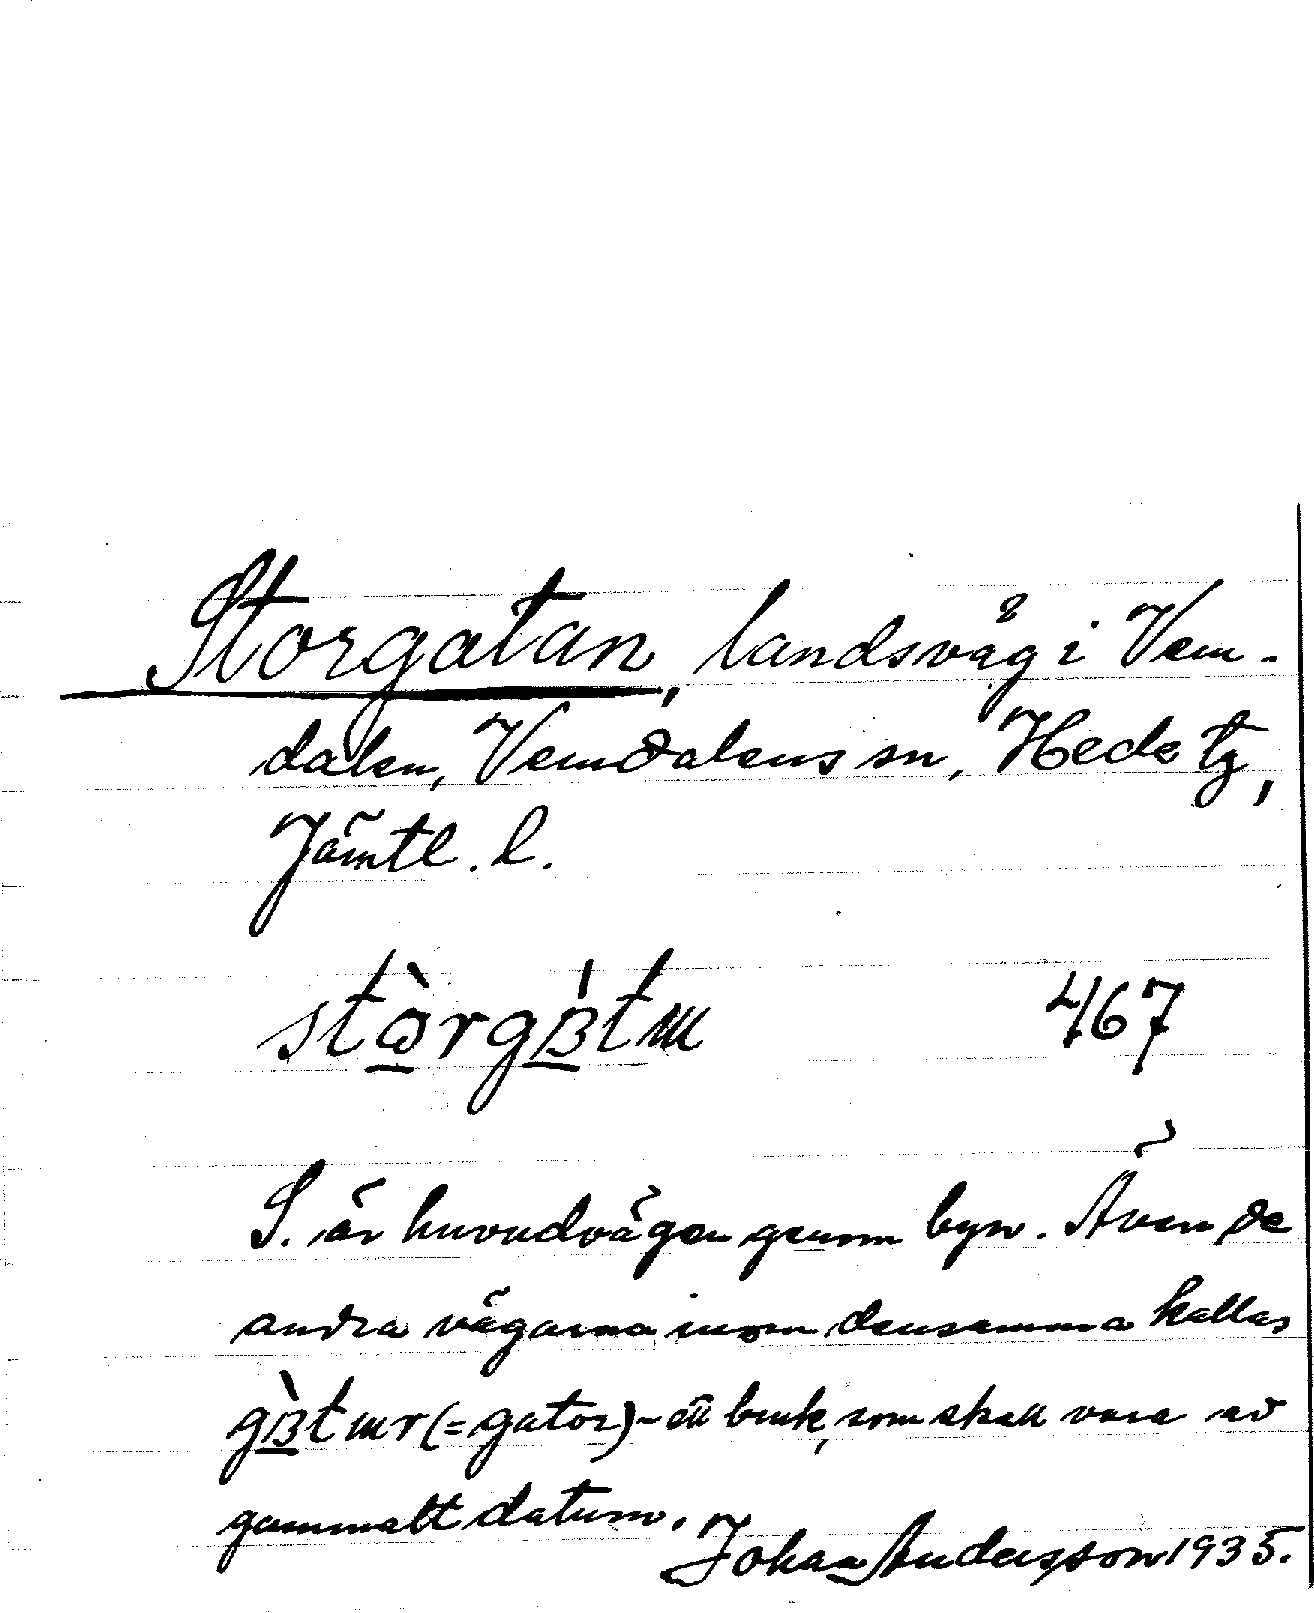 Storgatan, landsväg i Vem-
dalen, Vemdalens sn, Hede tg,
Jämtl. l.
467
S. är huvudvägen genom byn. Även de
andra vägarna inom densamma kallas
(= gator) – ett bruk, som skall vara av
gammalt datum.
Johan Andersson 1935.